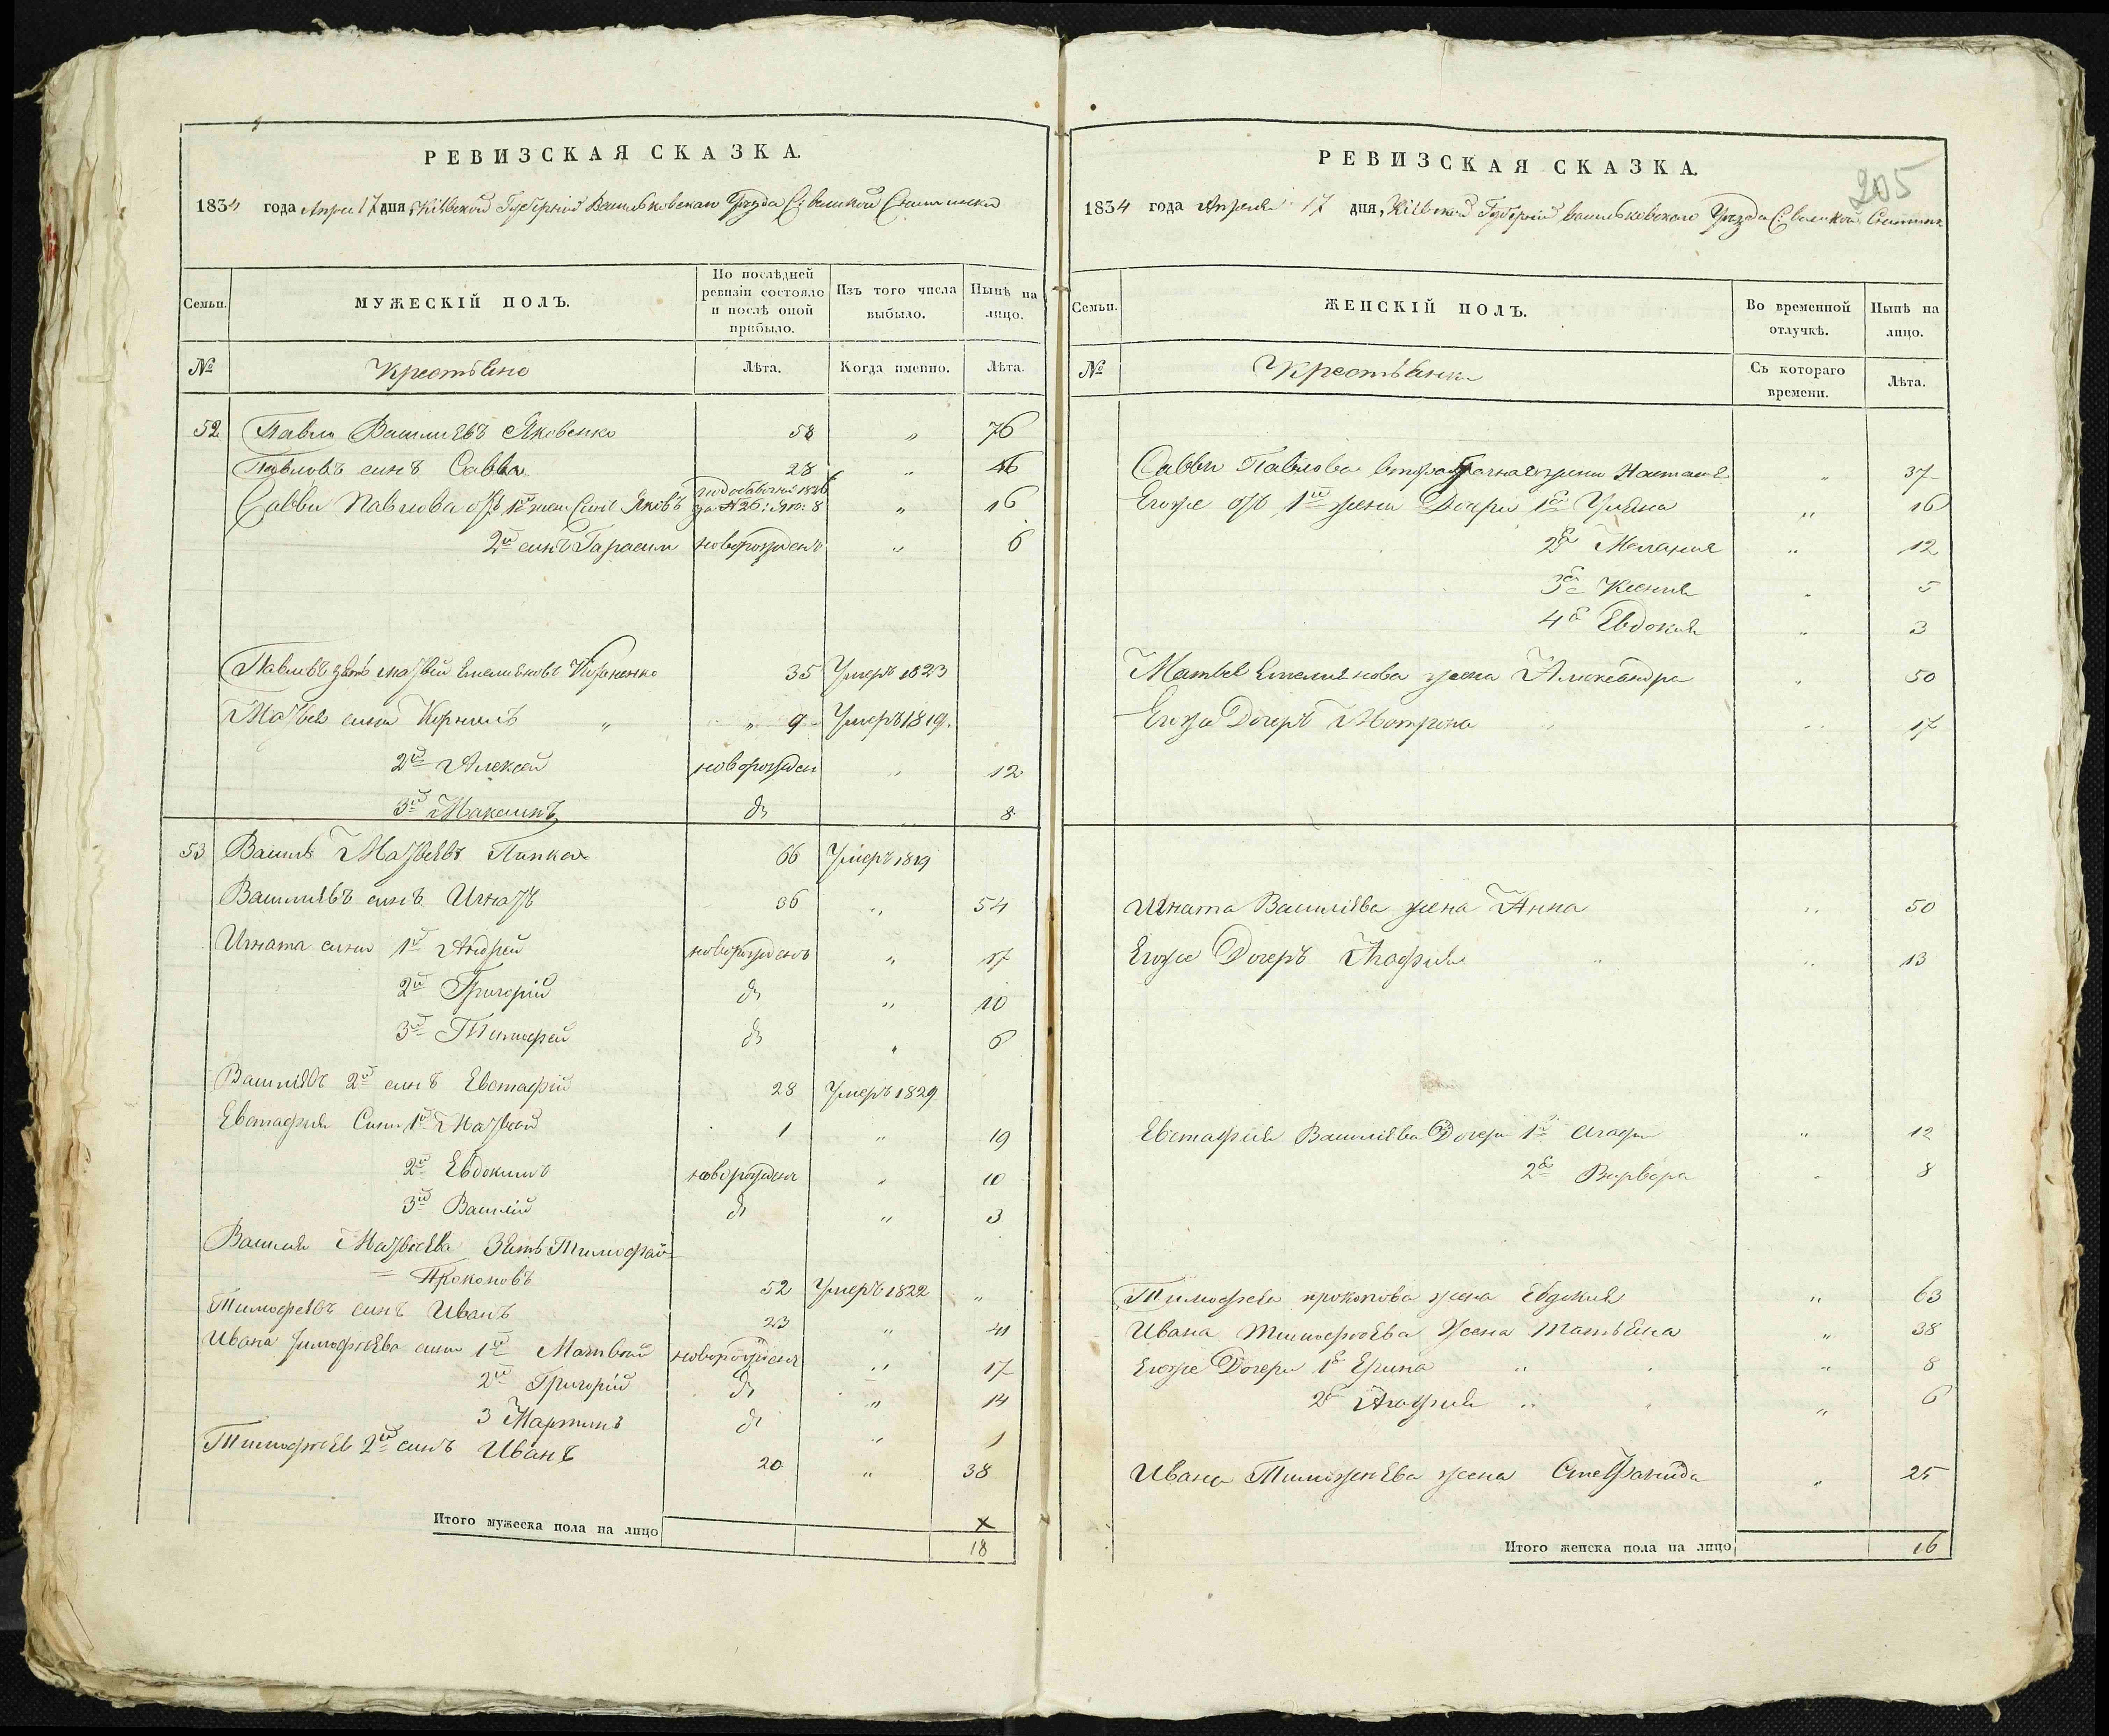 РЕВИЗСКАЯ СКАЗКА.
1834 года Апреля 17 дня, Кіѣвской Губерніи Васильковскаго Уѣзда С: великой
Семьи.
МУЖЕСКІЙ ПОЛЪ.
По послѣдней ревизіи состояло и послѣ оной прибыло.
Изъ того числа выбыло.
Нынѣ на лицо.
№
Крестьяне
Лѣта.
Когда именно.
Лѣта.
52 Павло Василиевъ Яковенко 58 " 76
Павловъ синъ Савва 28 " 46
Саввы Павлова отъ 1й жени Синъ Яковъ 8 " 16
2й синъ Гарасим новорожденъ " 6
Павловъ зять Матвей Емельяновъ 35 Умеръ 1823
Матвея сини Корнилъ " " 9 Умеръ 1819.
2й Алексей новорожден " 12
3й Максимъ дъ 8
53 Василь Матвеевъ Пипка 66 Умеръ 1819
Василиевъ синъ Игнатъ 36 " 54
Игната сини 1й Андрей новорожденъ " 17
2й Григорій дъ " 10
3й Тимофей дъ " 6
Василиевъ 2й синъ Евстафій 28 Умеръ 1829
Евстафия Сини 1й Матвей 1 " 19
2й Евдокимъ новорожден " 10
3й Василій дъ " 3
Василия Матвеева Зять Тимофай
= Прокоповъ 52 Умеръ 1822 "
Тимофеевъ синъ Иванъ 23 " 41
Ивана Тимофеева сини 1й Матвей новорожден " 17
2й Григорій дъ " 14
3 Мартинъ дъ " 1
Тимофеев 2й синъ Иванъ 20 " 38
Итого мужеска пола на лицо
х
18
205
РЕВИЗСКАЯ СКАЗКА.
1834 года Апреля 17 дня, Кіѣвской Губерніи Васильковскаго Уѣзда С: великой
Семьи.
ЖЕНСКІЙ ПОЛЪ.
Во временной отлучкѣ.
Нынѣ на лицо.
№
Крестьянки
Съ котораго времени.
Лѣта.
Саввы Павлова второбрачная жена Настасия " 37
Егоже отъ 1й жени Дочери 1я Уляна " 16
2я Мелания " 12
3я Ксения " 5
4я Евдокия " 3
Матвея Емелиянова жена Александра " 50
Егожа Дочеръ Мотрона " 17
Игната Василиева жена Анна " 50
Егоже Дочеръ Агафия " " 13
Евстафия Василиева Дочери 1я Агафи " 12
2я Варвара " 8
Тимофея прокопова жена Евдокия " 63
Ивана Тимофеева Жена Татьяна " 38
Егоже Дочери 1я Ерина " " 8
2я Агафия " " 6
Ивана Тимофеева жена Стефанида " 25
Итого женска пола на лицо 16